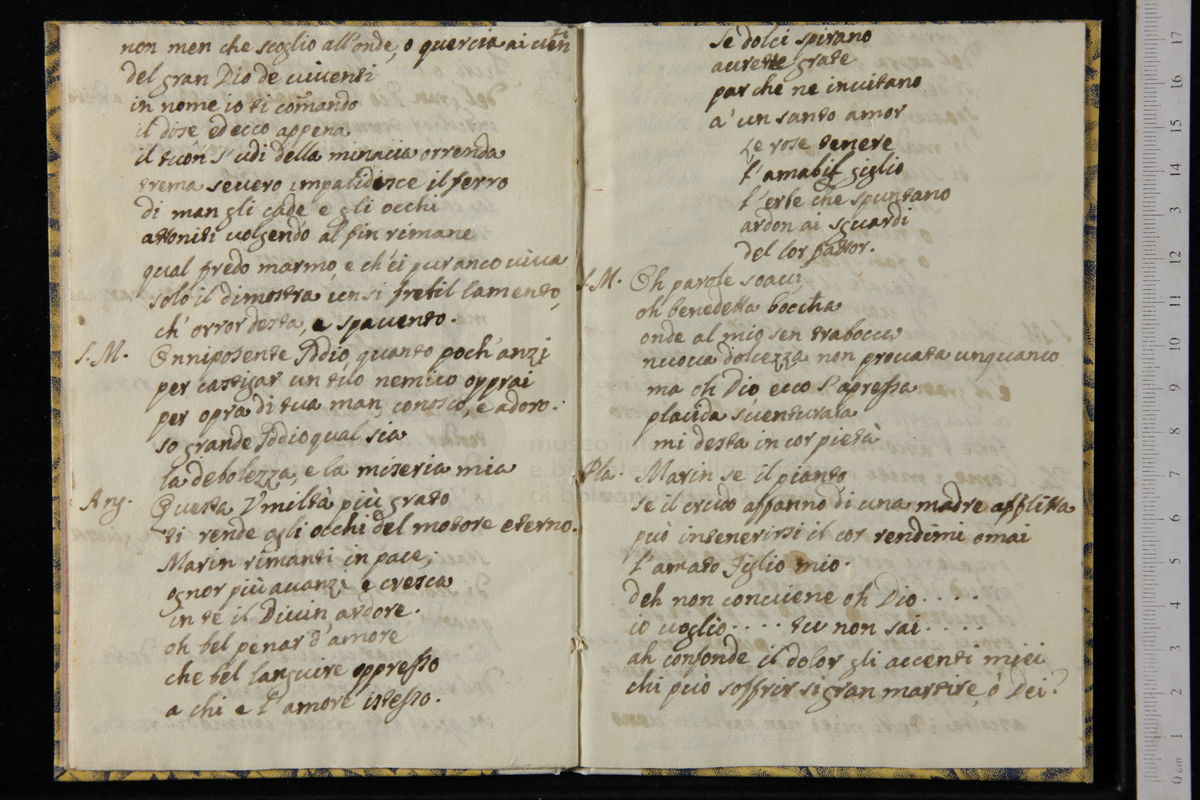 non men che scoglio all'onde, o quercia ai venti
del gran Dio de viventi
in nome io ti comando
il dise ed ecco appena
il tuon s'udì della minacia orrenda
trema severo impalidisce il ferro
di man gli cade e gli occhi
attoniti volgendo al fin rimane
qual fredo marmo, e ch'ei pur anco viva
solo il dimostra un si frevil lamento,
ch' orror desta, e spavento.
S. M. Onniposente Iddio quanto poch'anzi
per castigar un tuo nemico opprai
per opra di tua man conosco, e adoro.
so grande Iddio qual sia
la debolezza, e la miseria mia
Ang. Questa Umiltà più grato
ti rende agli occhi del motore eterno.
Marin rimanti in pace,
ognor più avanzi e cresca
in te il Divin ardore.
oh bel penar d'amore
che bel languire oppresso
a chi e l'amore istesso.
se dolci spirano
aurette grate
par che ne invitano
a' un santo amor
Le rose tenere
l'amabil giglio
l'erbe che spuntano
ardon ai sguardi
del lor fattor.
S. M. Oh parole soavi
oh benedetta boccha
onde al mio sen trabocca
nuova dolcezza non provata unquanco
ma oh Dio ecco s'apressa
placida sventurata
mi desta in cor pietà
Pla. Marin se il pianto
se il crudo affanno di una madre afflitta
può intenerirsi il cor rendimi omai
l'amato figlio mio.
deh non conviene oh Dio . . . . .
io voglio . . . . tu non sai . . . .
ah confonde il dolor gli accenti miei
chi può soffrir si gran martire, o' Dei?
museo